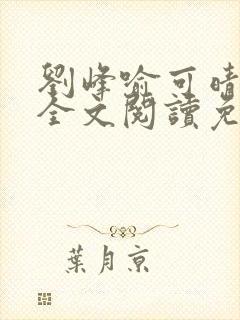 劉峰喻可晴
全文閱讀免
葉月京